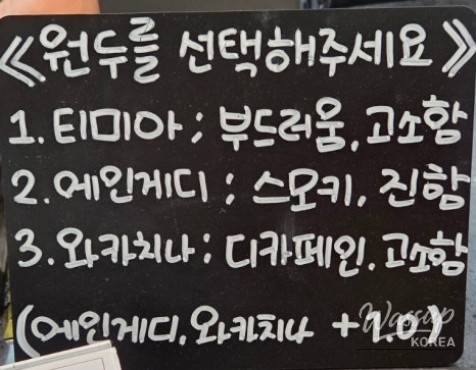 《원두를 선택해주세요》
1. 티미아 ; 부드러움, 고소함
2. 에인게디 ; 스모키, 진함
3. 와카치나 ; 디카페인, 고소함
(에인게디, 와카치나 +1.0)
Wassup
KOREA